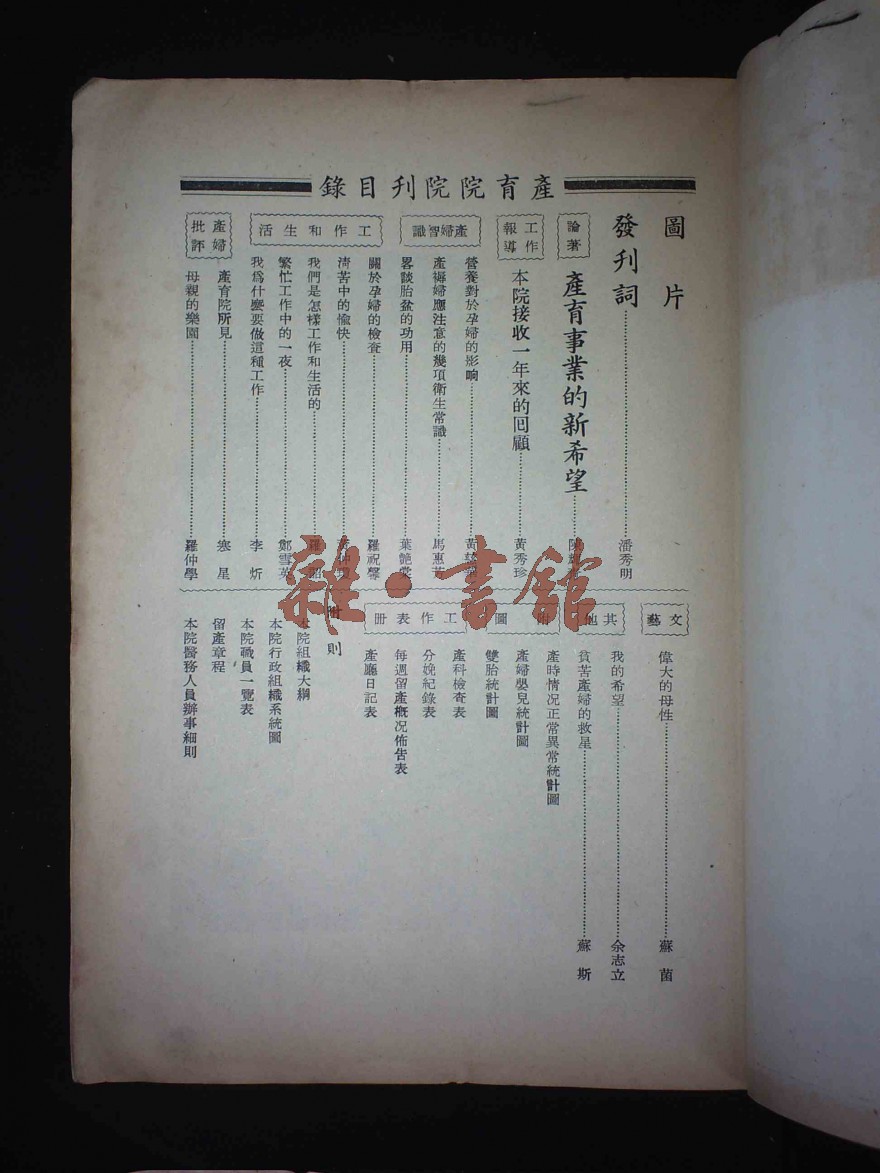 產育院院刊目錄
圖片
發刊詞……潘秀明
論著
產育事業的新希望……
工作報導
本院接收一年來的囘顧……黃秀珍
產婦智識
營養對於孕婦的影响……黃
產褥婦應注意的幾項衛生常識……馬惠
畧談胎盆的功用……葉艷
關於孕婦的檢査……羅祝馨
工作和生活
淸苦中的愉快……
我們是怎樣工作和生活的……
繁忙工作中的一夜……鄭雪英
我爲什麼要做這種工作……李炘
產婦批評
產育院所見……寒星
母親的樂園……羅仲學
文藝
偉大的母性……蘇茵
其他
我的希望……余志立
貧苦產婦的救星……蘇斯
附圖
產時情况正常異常統計圖
產婦嬰兒統計圖
雙胎統計圖
工作表册
產科檢查表
分娩紀錄表
每週留產槪况佈告表
產廳日記表
附則
本院組織大綱
本院行政組織系統圖
本院職員一覽表
留產章程
本院醫務人員辦事細則
雜·書館